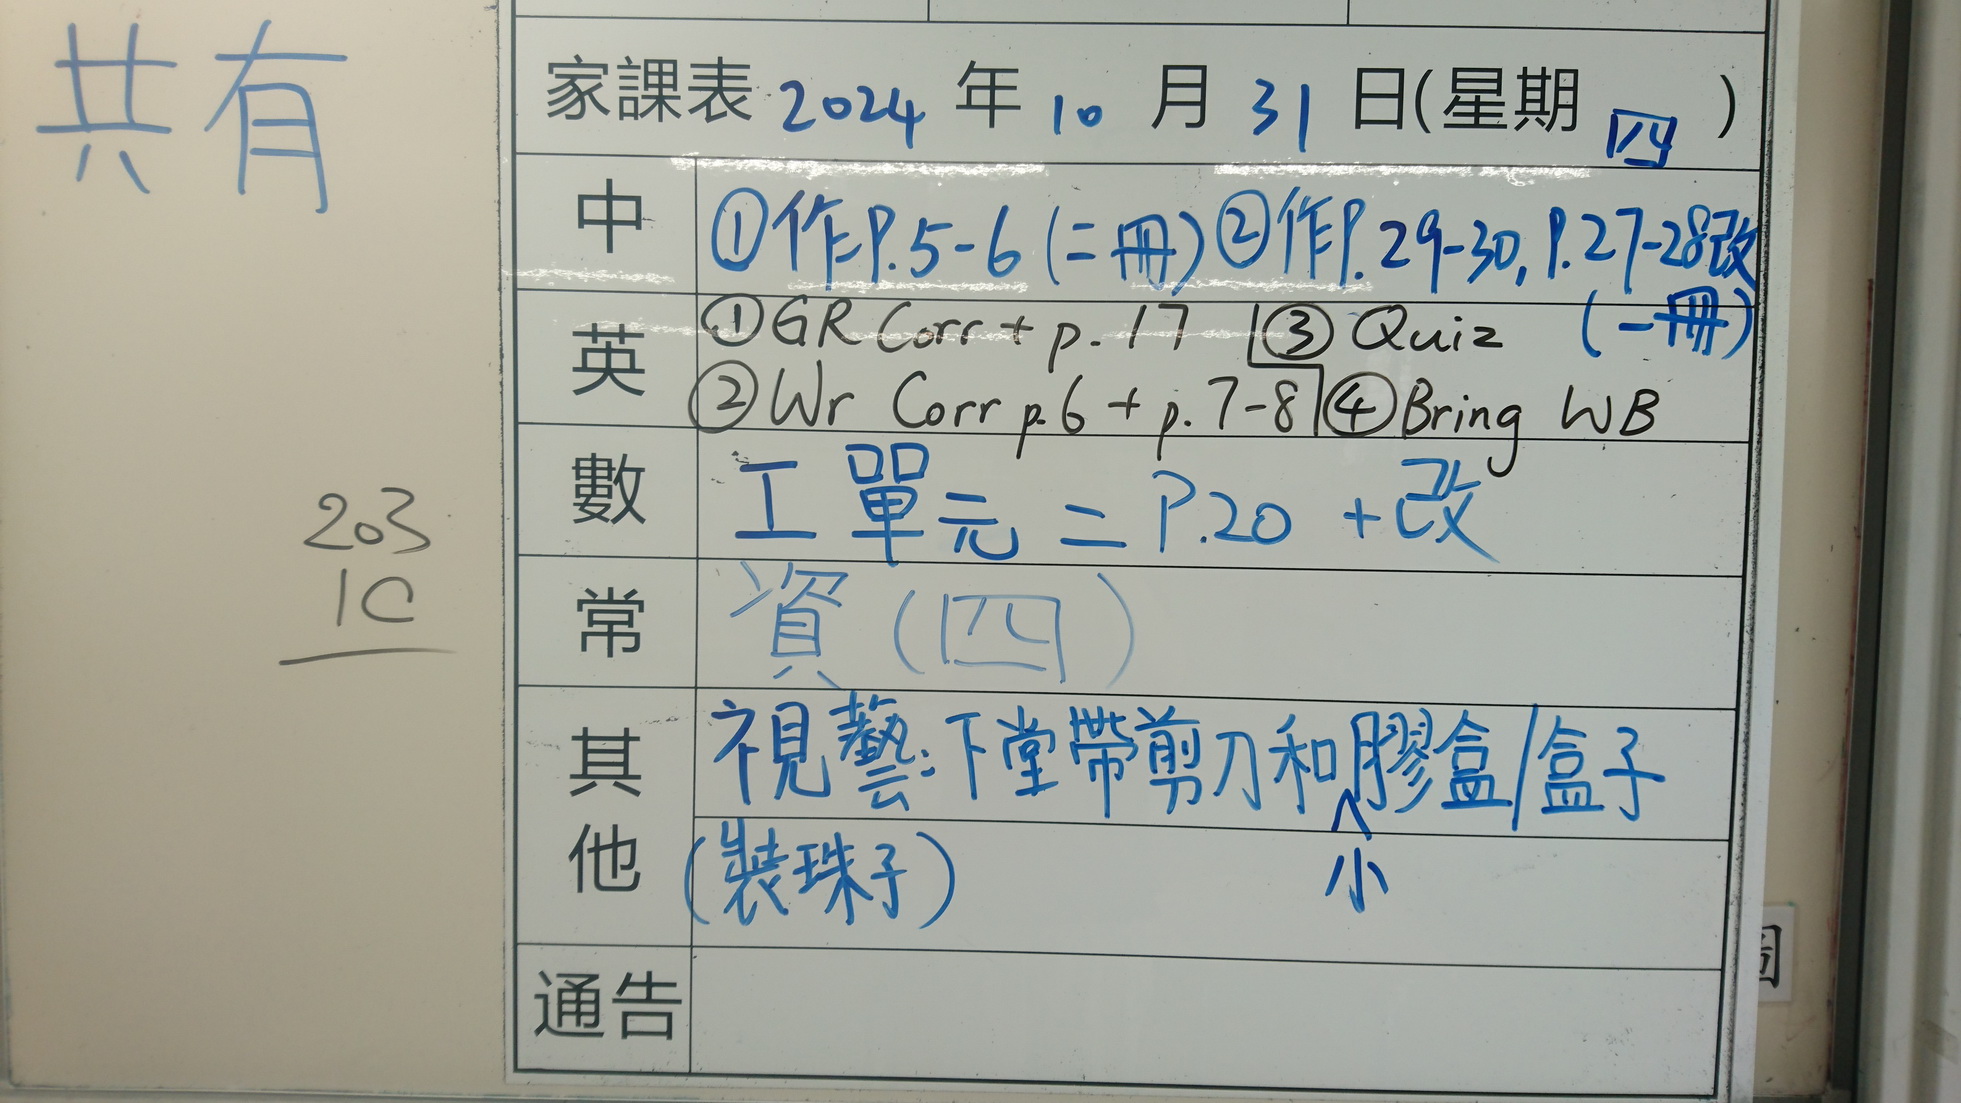 共有
203
1C
家課表 2024 年 10 月 31 日(星期 四 )
中 ①作P.5-6 (二冊) ②作P.29-30, P.27-28改
(一冊)
英 ①GR Corr + p.17 ③ Quiz
②Wr Corr p.6 + p.7-8 ④Bring WB
數 工單元二 P.20 +改
常 資(四)
其他 視藝:下堂帶剪刀和小膠盒/盒子
(裝珠子)
通告